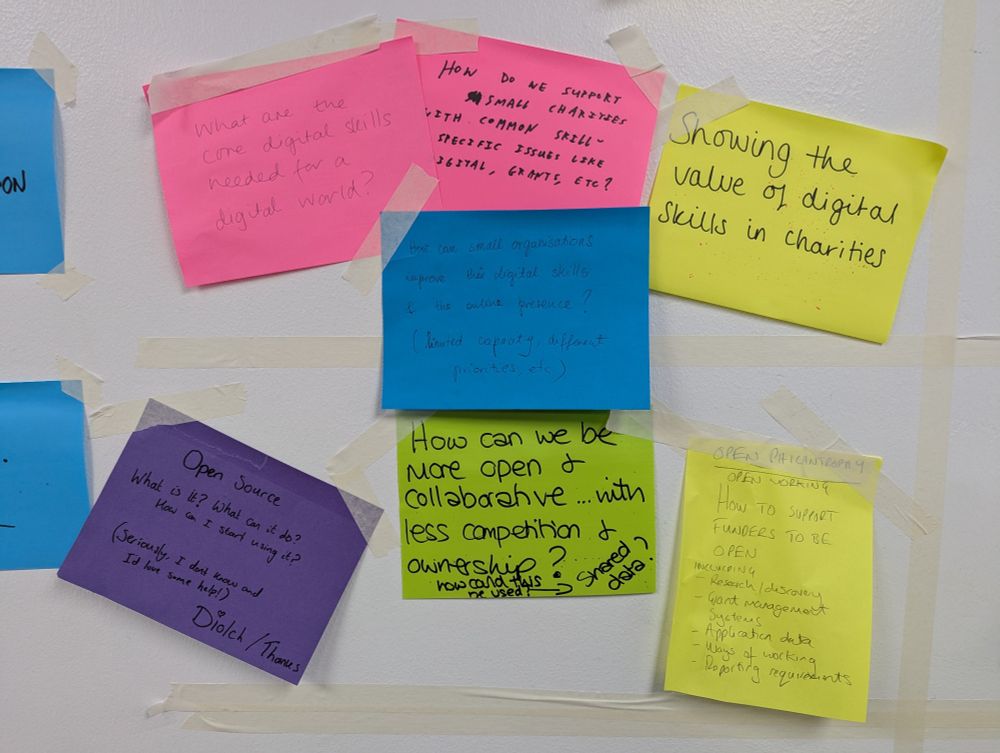 ON
What are the
core digital skills
needed for a
digital world?
HOW DO WE SUPPORT
SMALL CHARITIES
WITH COMMON SKILL-
SPECIFIC ISSUES LIKE
DIGITAL, GRANTS, ETC?
Showing the
value of digital
skills in charities
How can small organisations
improve their digital skills
& the online presence?
(limited capacity, different
priorities, etc.)
Open Source
What is It? What can it do?
How can I start using it?
(Seriously, I dont know and
I'd love some help!)
Diolch / Thanks
How can we be
more open &
collaborative ... with
less competition &
ownership?
how could this
be used? → shared
data?
OPEN PHILANTROPHY
OPEN WORKING
HOW TO SUPPORT
FUNDERS TO BE
OPEN
INCLUDING
- Research/discovery
- Grant management
systems
- Application data
- Ways of working
- Reporting requirements